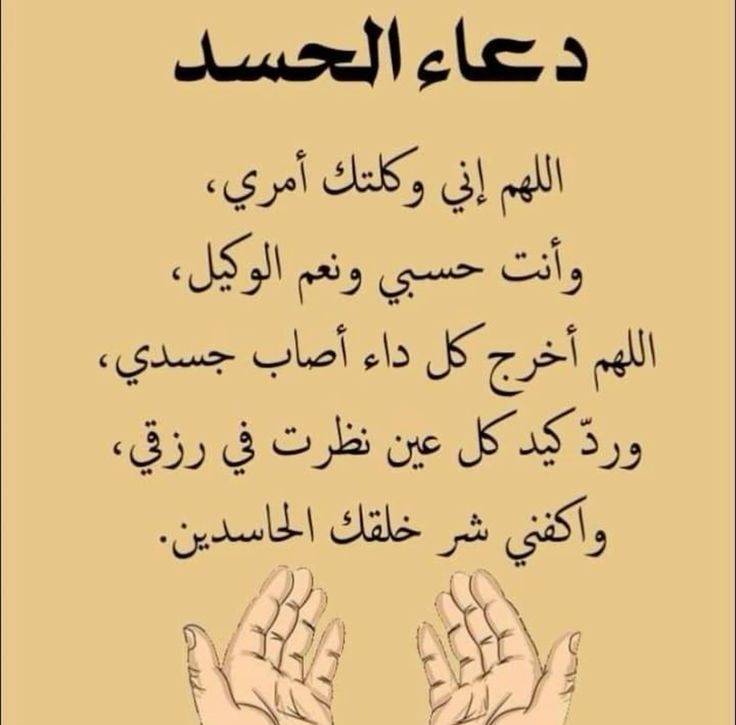 دعاء الحسد
اللهم إني وكلتك أمري،
وأنت حسبي ونعم الوكيل،
اللهم أخرج كل داء أصاب جسدي،
وردّ كيد كل عين نظرت في رزقي،
واكفني شر خلقك الحاسدين.